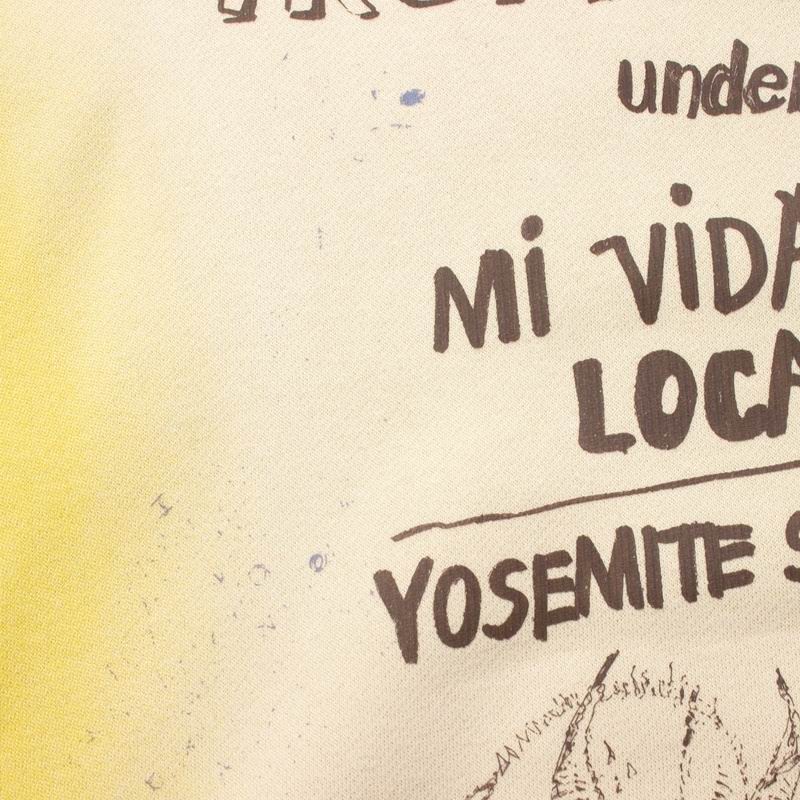 under
Mi ViDA
LOCA
YOSEMITE S